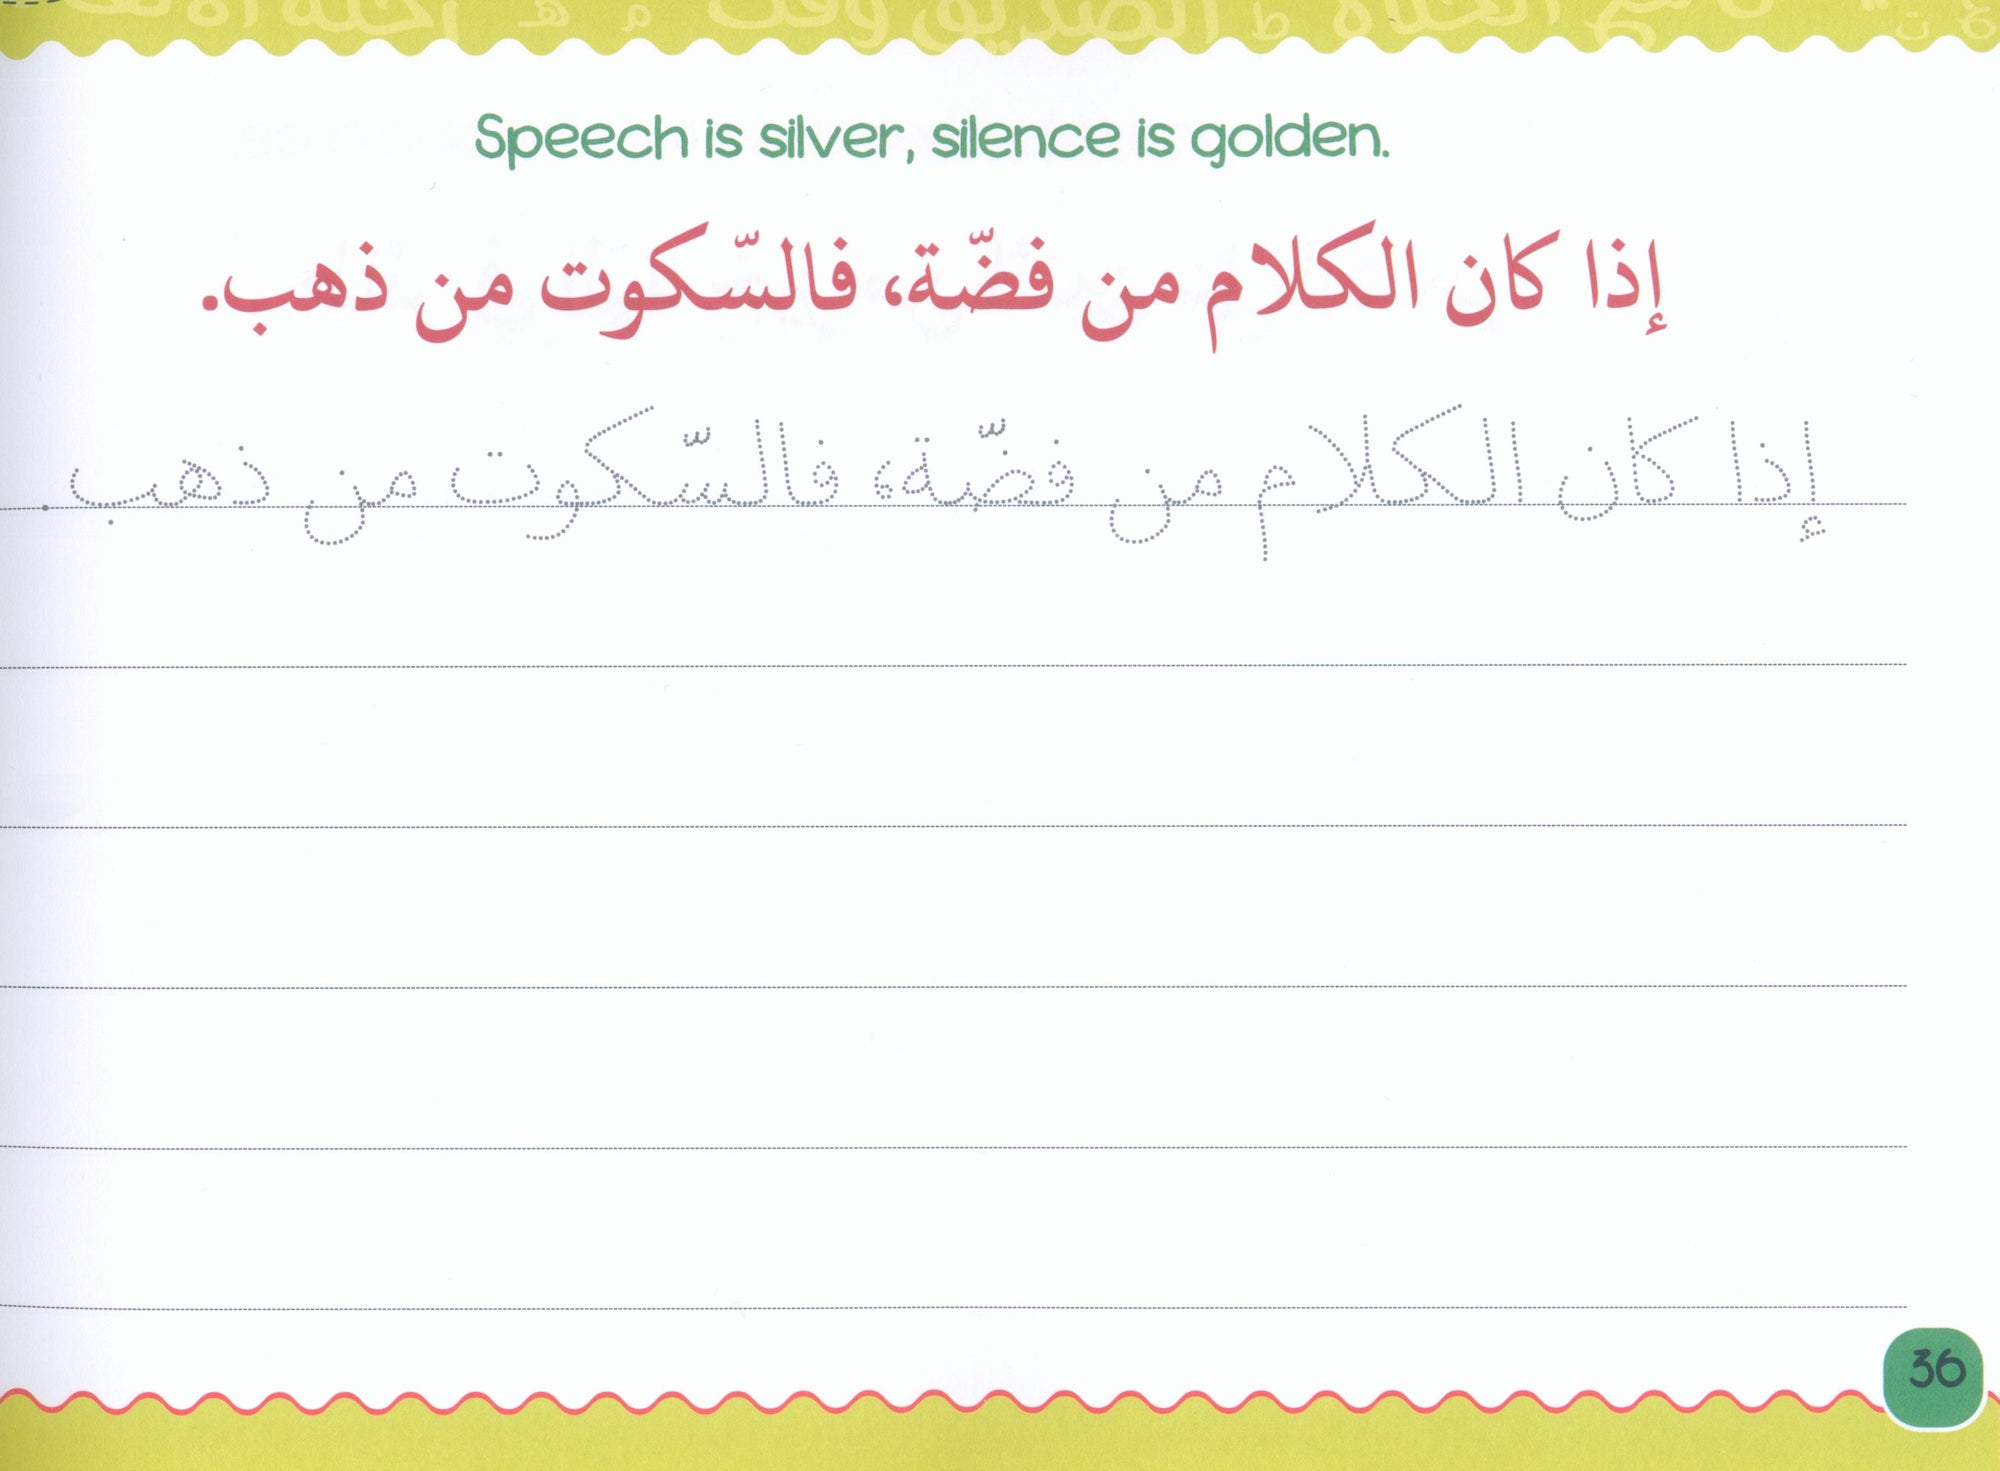 Speech is silver, silence is golden.
إذا كان الكلام من فضّة، فالسّكوت من ذهب.
إذا كان الكلام من فضّة، فالسّكوت من ذهب.
36